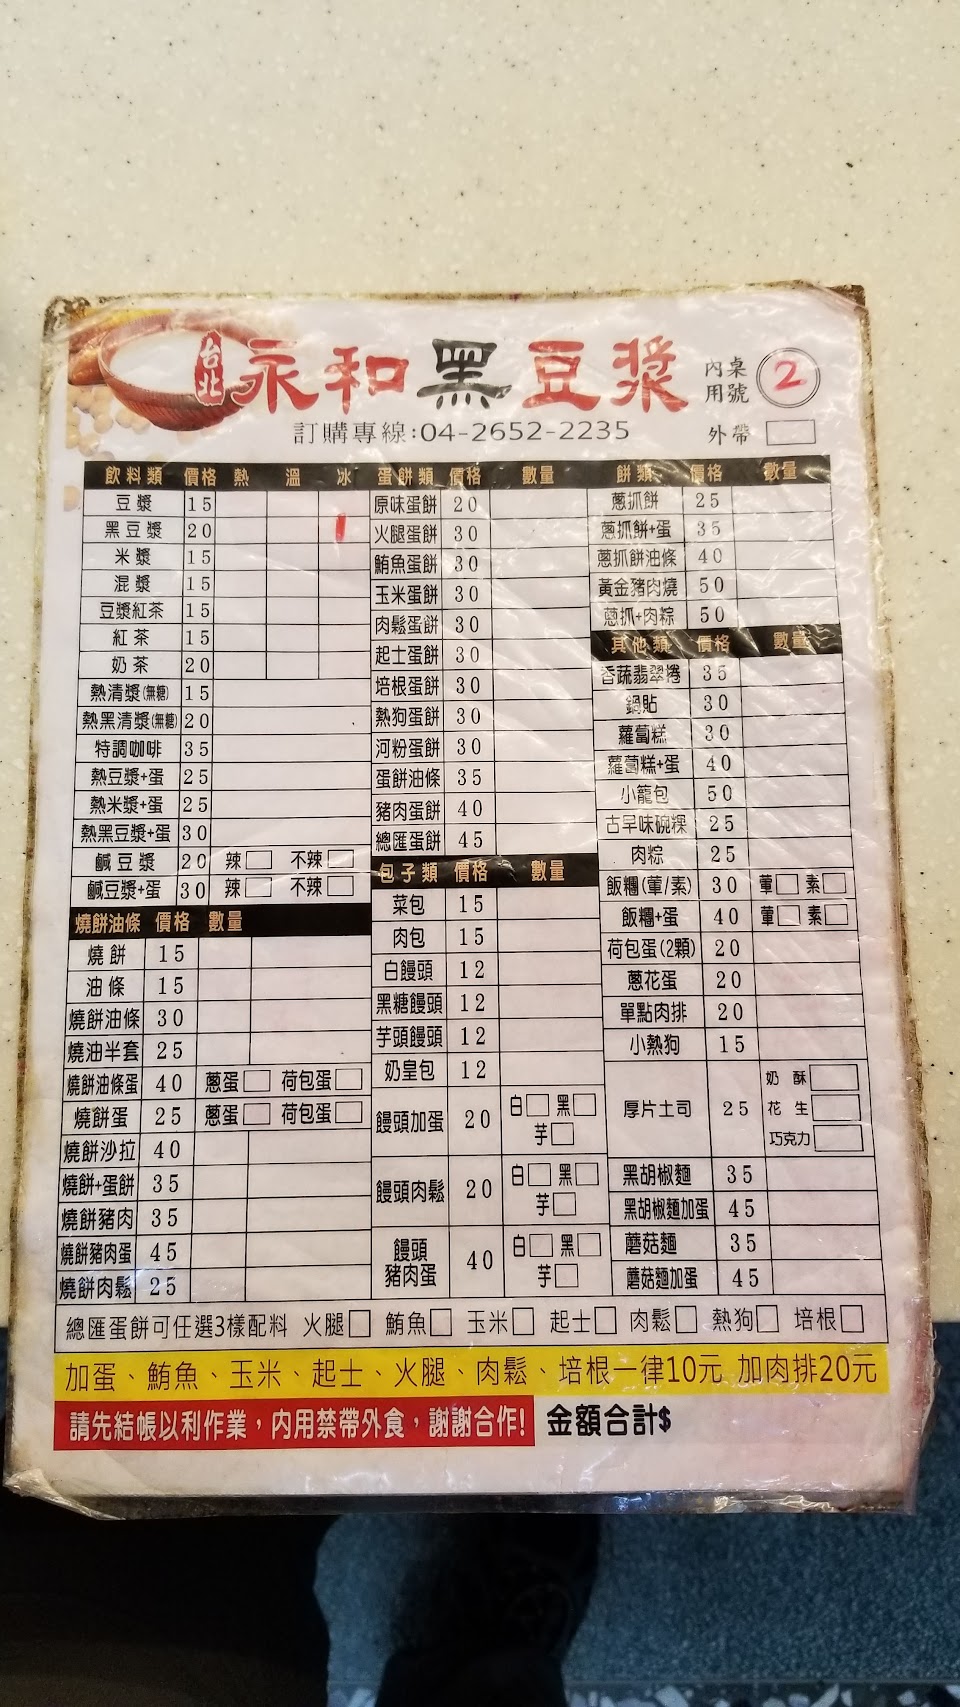 台北 永和黑豆漿 內用 桌號 2
訂購專線:04-2652-2235 外帶
飲料類 價格 熱 溫 冰
豆漿 15
黑豆漿 20
米漿 15
混漿 15
豆漿紅茶 15
紅茶 15
奶茶 20
熱清漿(無糖) 15
熱黑清漿(無糖) 20
特調咖啡 35
熱豆漿+蛋 25
熱米漿+蛋 25
熱黑豆漿+蛋 30
鹹豆漿 20 辣 不辣
鹹豆漿+蛋 30 辣 不辣
燒餅油條 價格 數量
燒餅 15
油條 15
燒餅油條 30
燒油半套 25
燒餅油條蛋 40 蔥蛋 荷包蛋
燒餅蛋 25 蔥蛋 荷包蛋
燒餅沙拉 40
燒餅+蛋餅 35
燒餅豬肉 35
燒餅豬肉蛋 45
燒餅肉鬆 25
蛋餅類 價格 數量
原味蛋餅 20
火腿蛋餅 30
鮪魚蛋餅 30
玉米蛋餅 30
肉鬆蛋餅 30
起士蛋餅 30
培根蛋餅 30
熱狗蛋餅 30
河粉蛋餅 30
蛋餅油條 35
豬肉蛋餅 40
總匯蛋餅 45
包子類 價格 數量
菜包 15
肉包 15
白饅頭 12
黑糖饅頭 12
芋頭饅頭 12
奶皇包 12
饅頭加蛋 20 白 黑 芋
饅頭肉鬆 20 白 黑 芋
饅頭豬肉蛋 40 白 黑 芋
餅類 價格 數量
蔥抓餅 25
蔥抓餅+蛋 35
蔥抓餅油條 40
黃金豬肉燒 50
蔥抓+肉粽 50
其他類 價格 數量
香蔬翡翠捲 35
鍋貼 30
蘿蔔糕 30
蘿蔔糕+蛋 40
小籠包 50
古早味碗粿 25
肉粽 25
飯糰(葷/素) 30 葷 素
飯糰+蛋 40 葷 素
荷包蛋(2顆) 20
蔥花蛋 20
單點肉排 20
小熱狗 15
厚片土司 25 奶酥 花生 巧克力
黑胡椒麵 35
黑胡椒麵加蛋 45
蘑菇麵 35
蘑菇麵加蛋 45
總匯蛋餅可任選3樣配料 火腿 鮪魚 玉米 起士 肉鬆 熱狗 培根
加蛋、鮪魚、玉米、起士、火腿、肉鬆、培根一律10元 加肉排20元
請先結帳以利作業，內用禁帶外食，謝謝合作! 金額合計$